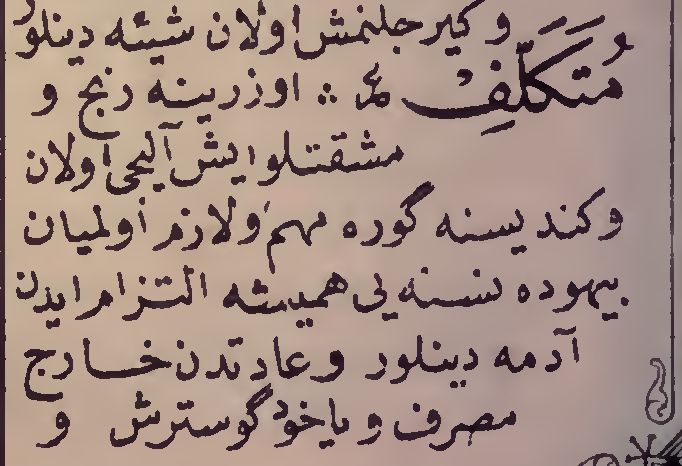 و كیرجلنمش اولان شیئه دینلور
مُتَكَلِّفْ ؏ ⁘ اوزرینه رنج و
مشقتلو ایش آلیجی اولان
و كندیسنه گوره مهم ولازم اولمیان
بیهوده نسنه یی همیشه التزام ایدن
آدمه دینلور و عادتدن خارج
مصرف و یاخود گوسترش و